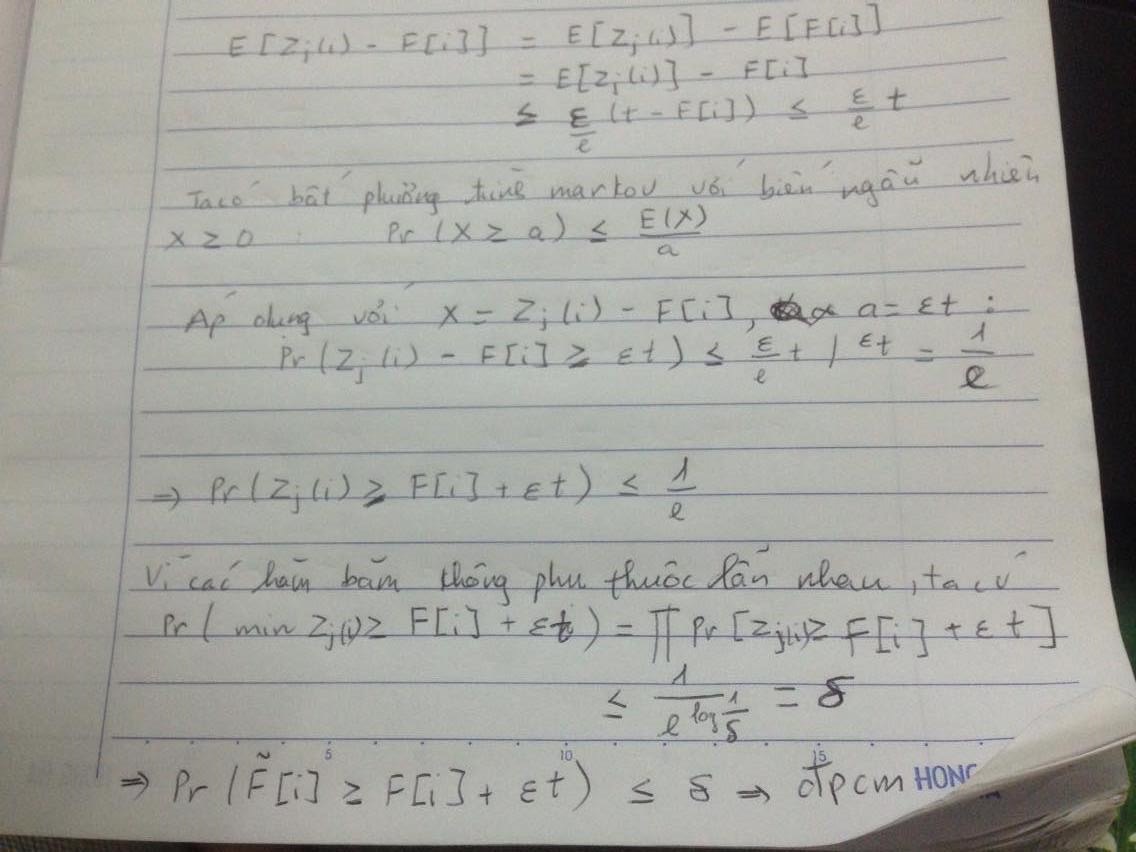 E[Zj(i) - F[i]] = E[Zj(i)] - E[F[i]]
= E[Zj(i)] - F[i]
≤ ε/e (t - F[i]) ≤ ε/e t
Ta có bất phương trình markov với biến ngẫu nhiên
X ≥ 0 : Pr(X ≥ a) ≤ E(X)/a
Áp dụng với X = Zj(i) - F[i], a = εt :
Pr(Zj(i) - F[i] ≥ εt) ≤ ε/e t / εt = 1/e
⇒ Pr(Zj(i) ≥ F[i] + εt) ≤ 1/e
Vì các hàm băm không phụ thuộc lẫn nhau, ta có
Pr(min Zj(i) ≥ F[i] + εt) = ∏ Pr[Zj(i) ≥ F[i] + εt]
≤ 1/e^(log 1/δ) = δ
5 10 15
⇒ Pr(F̃[i] ≥ F[i] + εt) ≤ δ ⇒ đpcm HONG